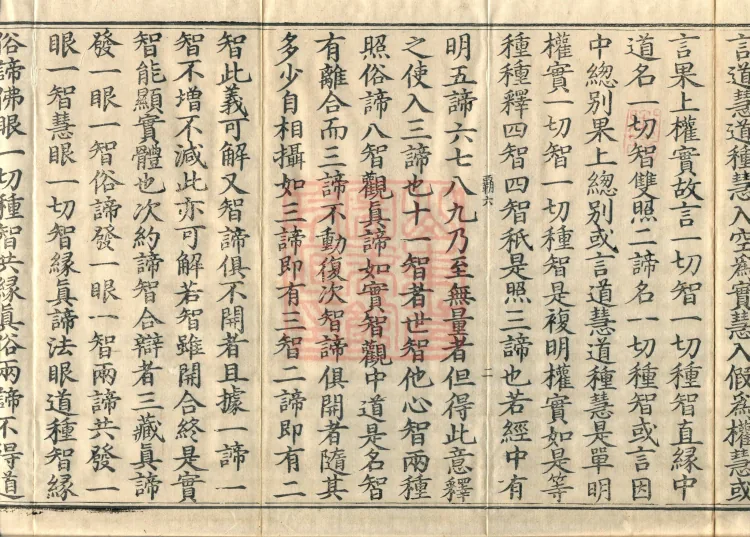 言道慧道種慧入空爲實慧入假爲權慧或
言果上權實故言一切智一切種智直緣中
道名一切智雙照二諦名一切種智或言因
中總別果上總別或言道慧道種慧是單明
權實一切智一切種智是複明權實如是等
種種釋四智四智秖是照三諦也若經中有
霸六
二
明五諦六七八九乃至無量者但得此意釋
之使入三諦也十一智者世智他心智兩種
照俗諦八智觀眞諦如實智觀中道是名智
有離合而三諦不動復次智諦俱開者隨其
多少自相攝如三諦即有三智二諦即有二
智此義可解又智諦俱不開者且據一諦一
智不增不減此亦可解若智雖開合終是實
智能顯實體也次約諦智合辯者三藏眞諦
發一眼一智俗諦發一眼一智兩諦共發一
眼一智慧眼一切智緣眞諦法眼道種智緣
俗諦佛眼一切種智共緣眞俗兩諦不得道